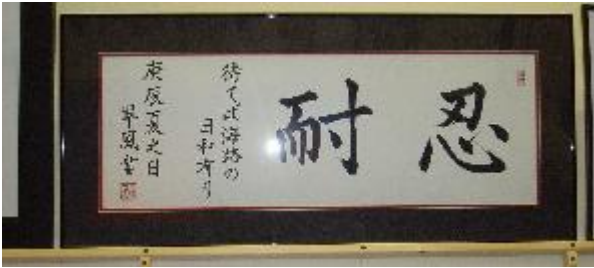 忍耐
待てば海路の
日和有り
庚辰夏之日
翠風書